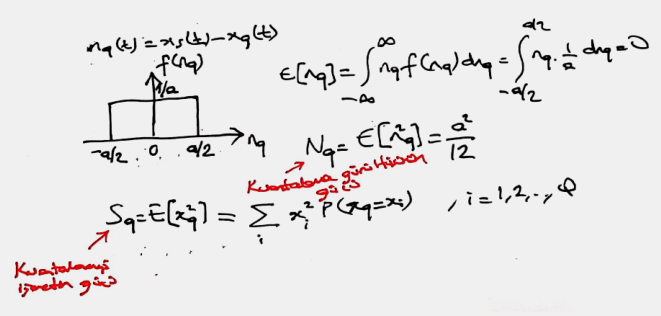 n_q(t) = x_s(t) - x_q(t)
f(n_q)
1/a
-a/2 0 a/2 n_q
E[n_q] = ∫_{-∞}^{∞} n_q f(n_q) dn_q = ∫_{-a/2}^{a/2} n_q · 1/a dn_q = 0
N_q = E[n_q^2] = a^2/12
Kuantalama gürültüsünün
gücü
S_q = E[x_q^2] = Σ_i x_i^2 P(x_q = x_i) , i = 1, 2, .., Q
Kuantalanmış
işaretin gücü